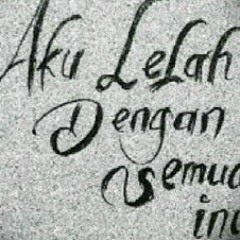 Aku LeLah
Dengan
semua
ini